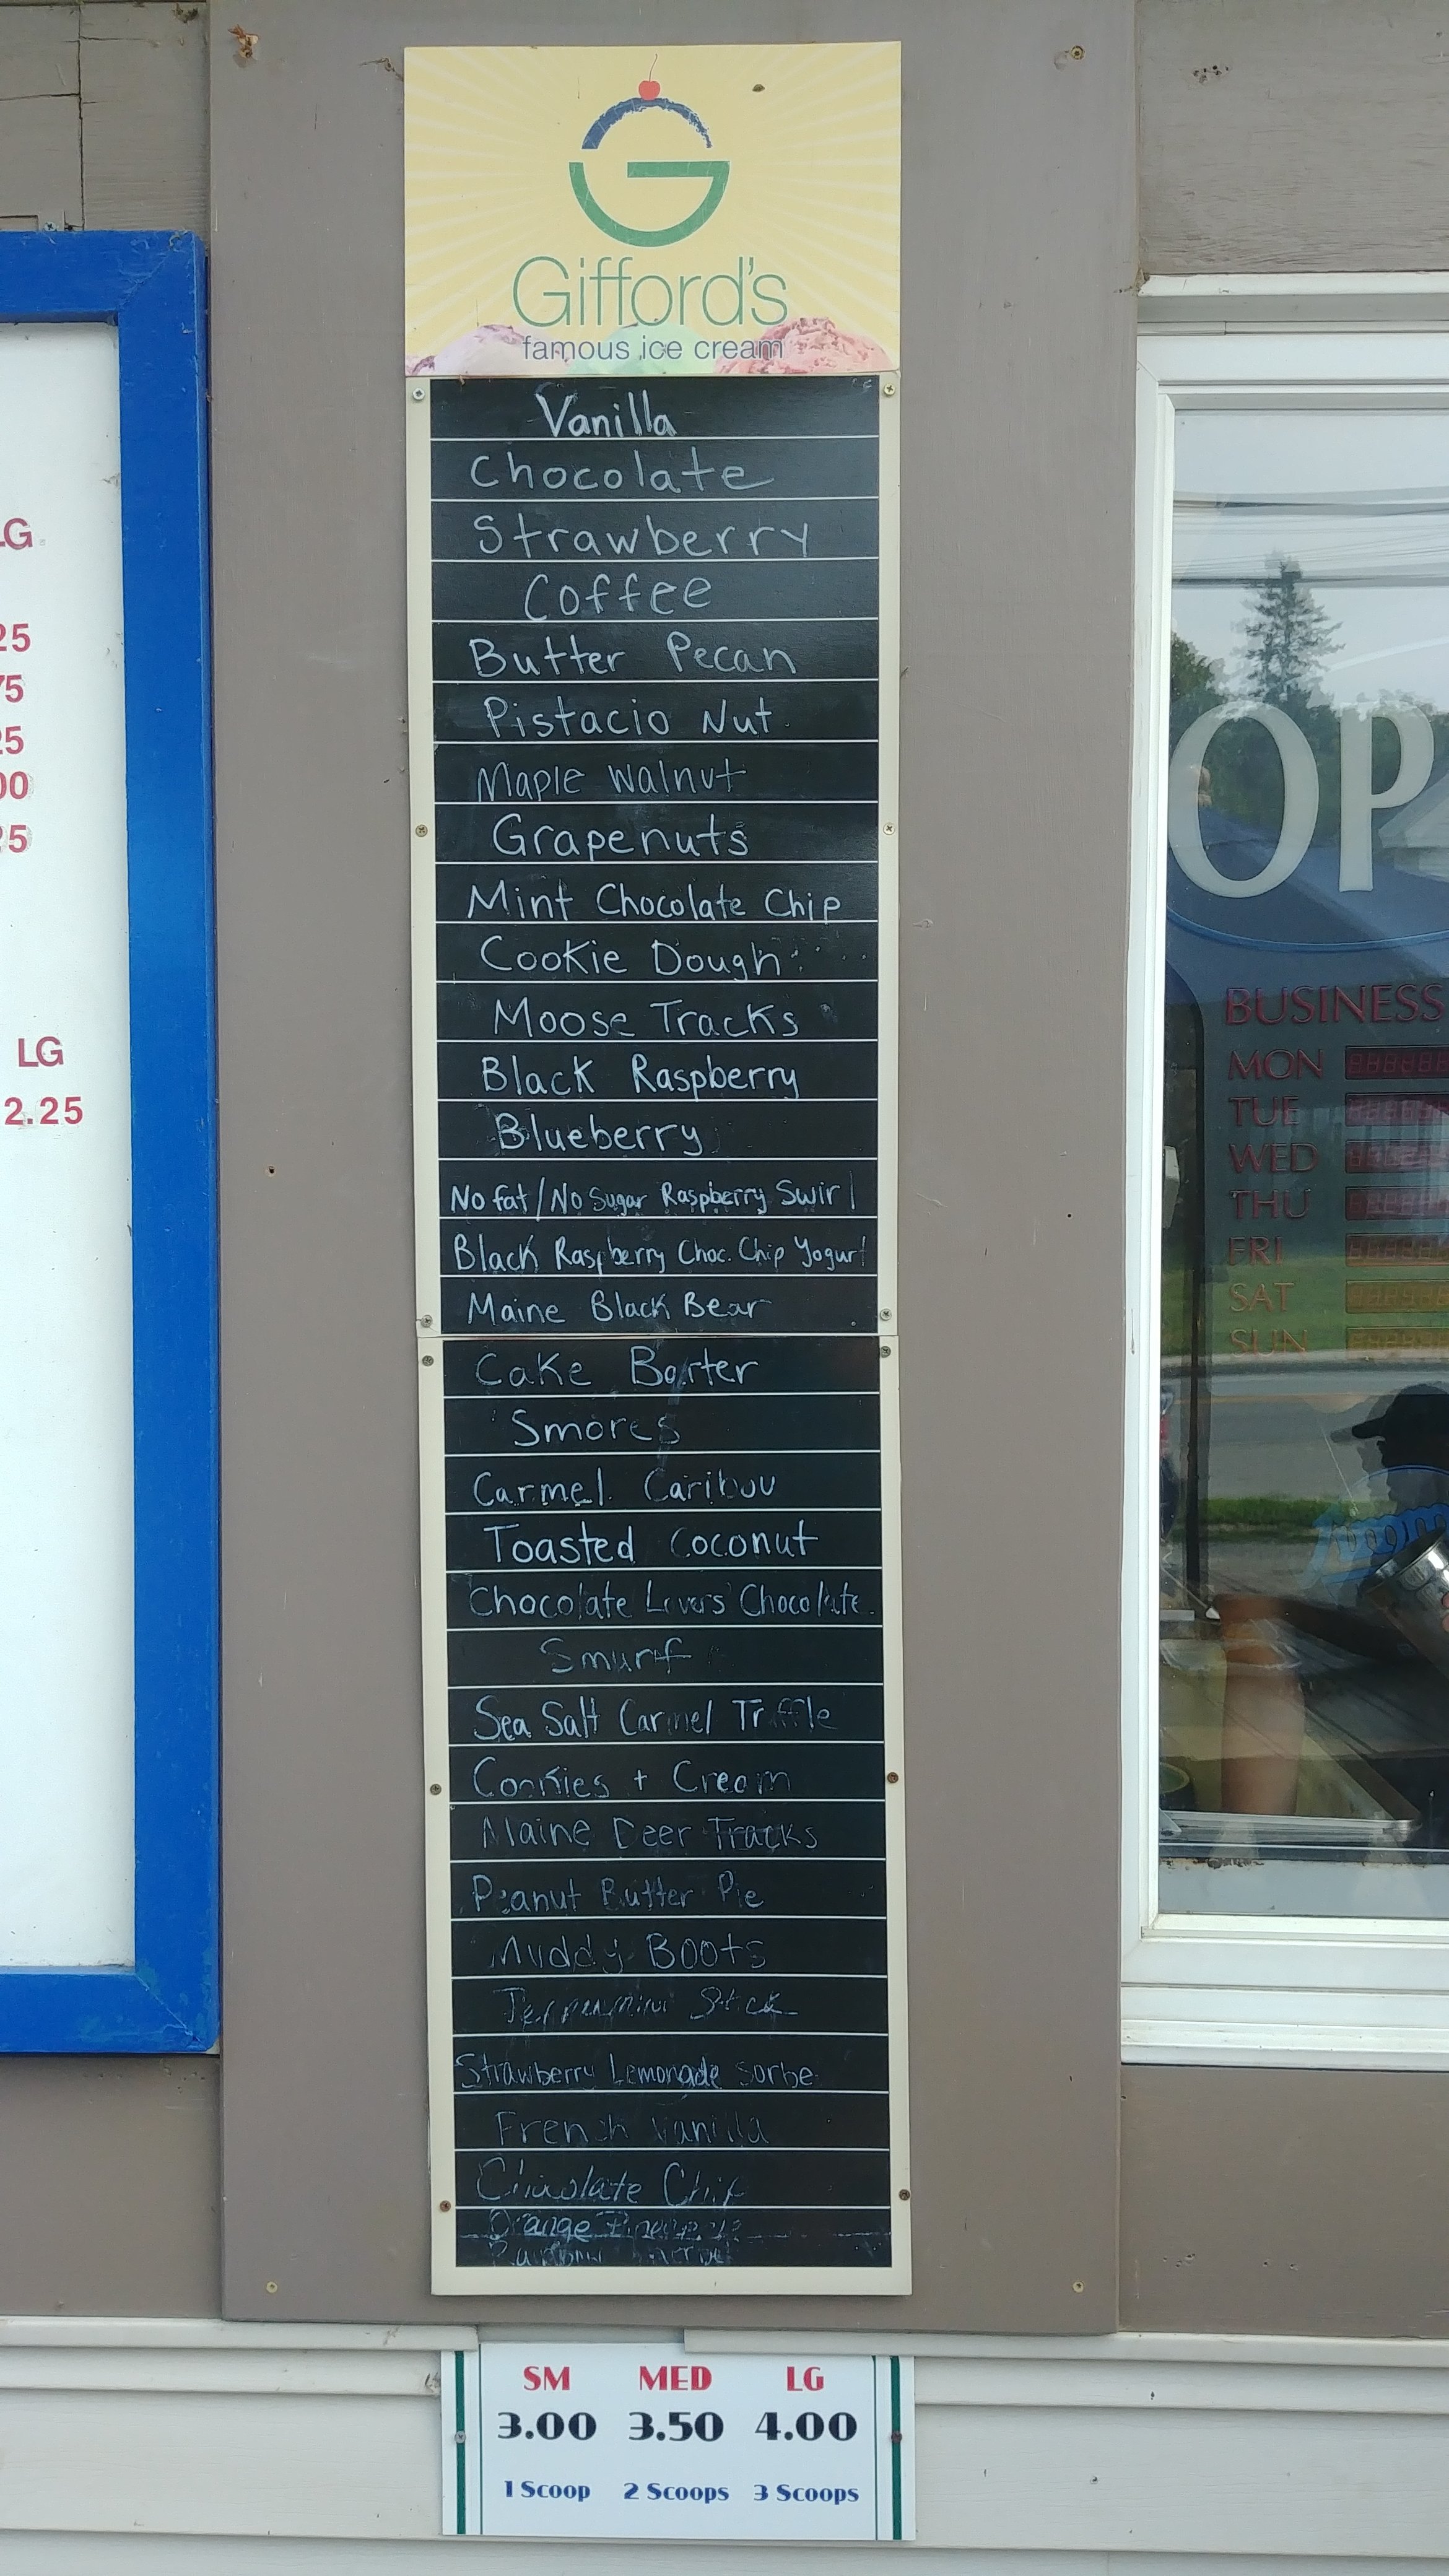 Gifford's
famous ice cream
Vanilla
Chocolate
Strawberry
Coffee
Butter Pecan
Pistacio Nut
Maple Walnut
Grapenuts
Mint Chocolate Chip
Cookie Dough
Moose Tracks
Black Raspberry
Blueberry
No fat/No Sugar Raspberry Swirl
Black Raspberry Choc. Chip Yogurt
Maine Black Bear
Cake Barter
Smores
Carmel Caribou
Toasted Coconut
Chocolate Lovers Chocolate
Smurf
Sea Salt Carmel Truffle
Cookies + Cream
Maine Deer Tracks
Peanut Butter Pie
Muddy Boots
Stick
Strawberry Lemonade Sorbe
French Vanilla
Chocolate Chip
Orange
SM MED LG
3.00 3.50 4.00
1 Scoop 2 Scoops 3 Scoops
LG
25
75
25
00
25
LG
2.25
OP
BUSINESS
MON
TUE
WED
THU
FRI
SAT
SUN